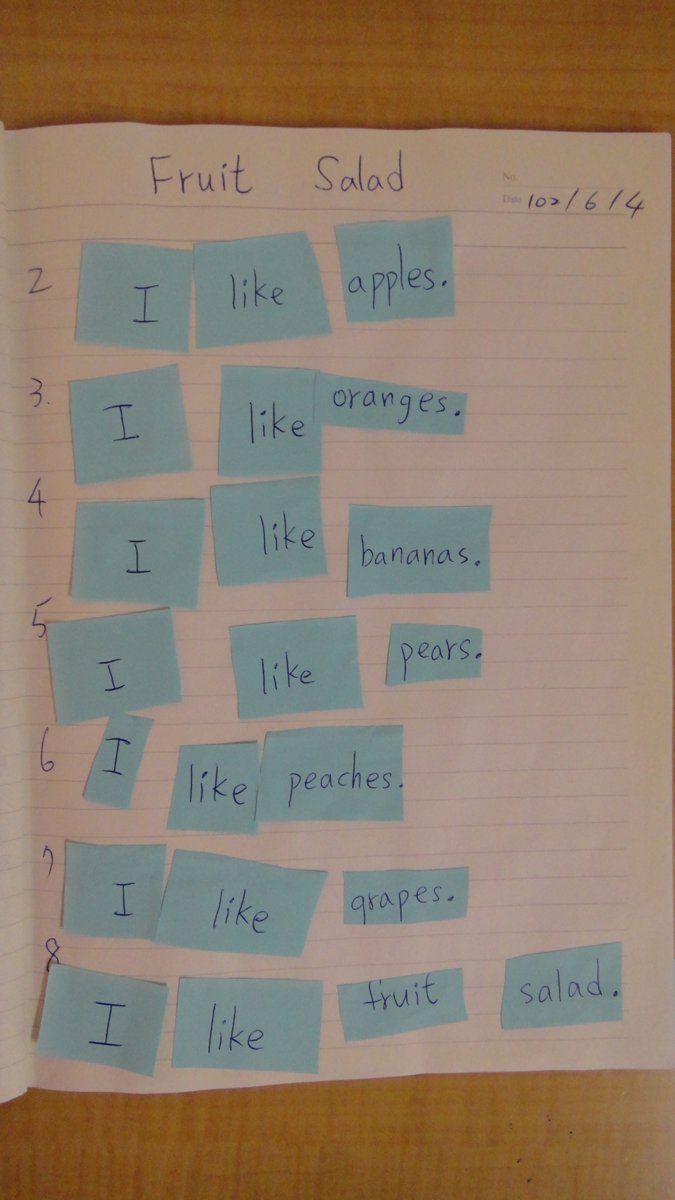 Fruit Salad
No.
Date 102/6/4
2 I like apples.
3. I like oranges.
4 I like bananas.
5 I like pears.
6 I like peaches.
7 I like grapes.
8 I like fruit salad.